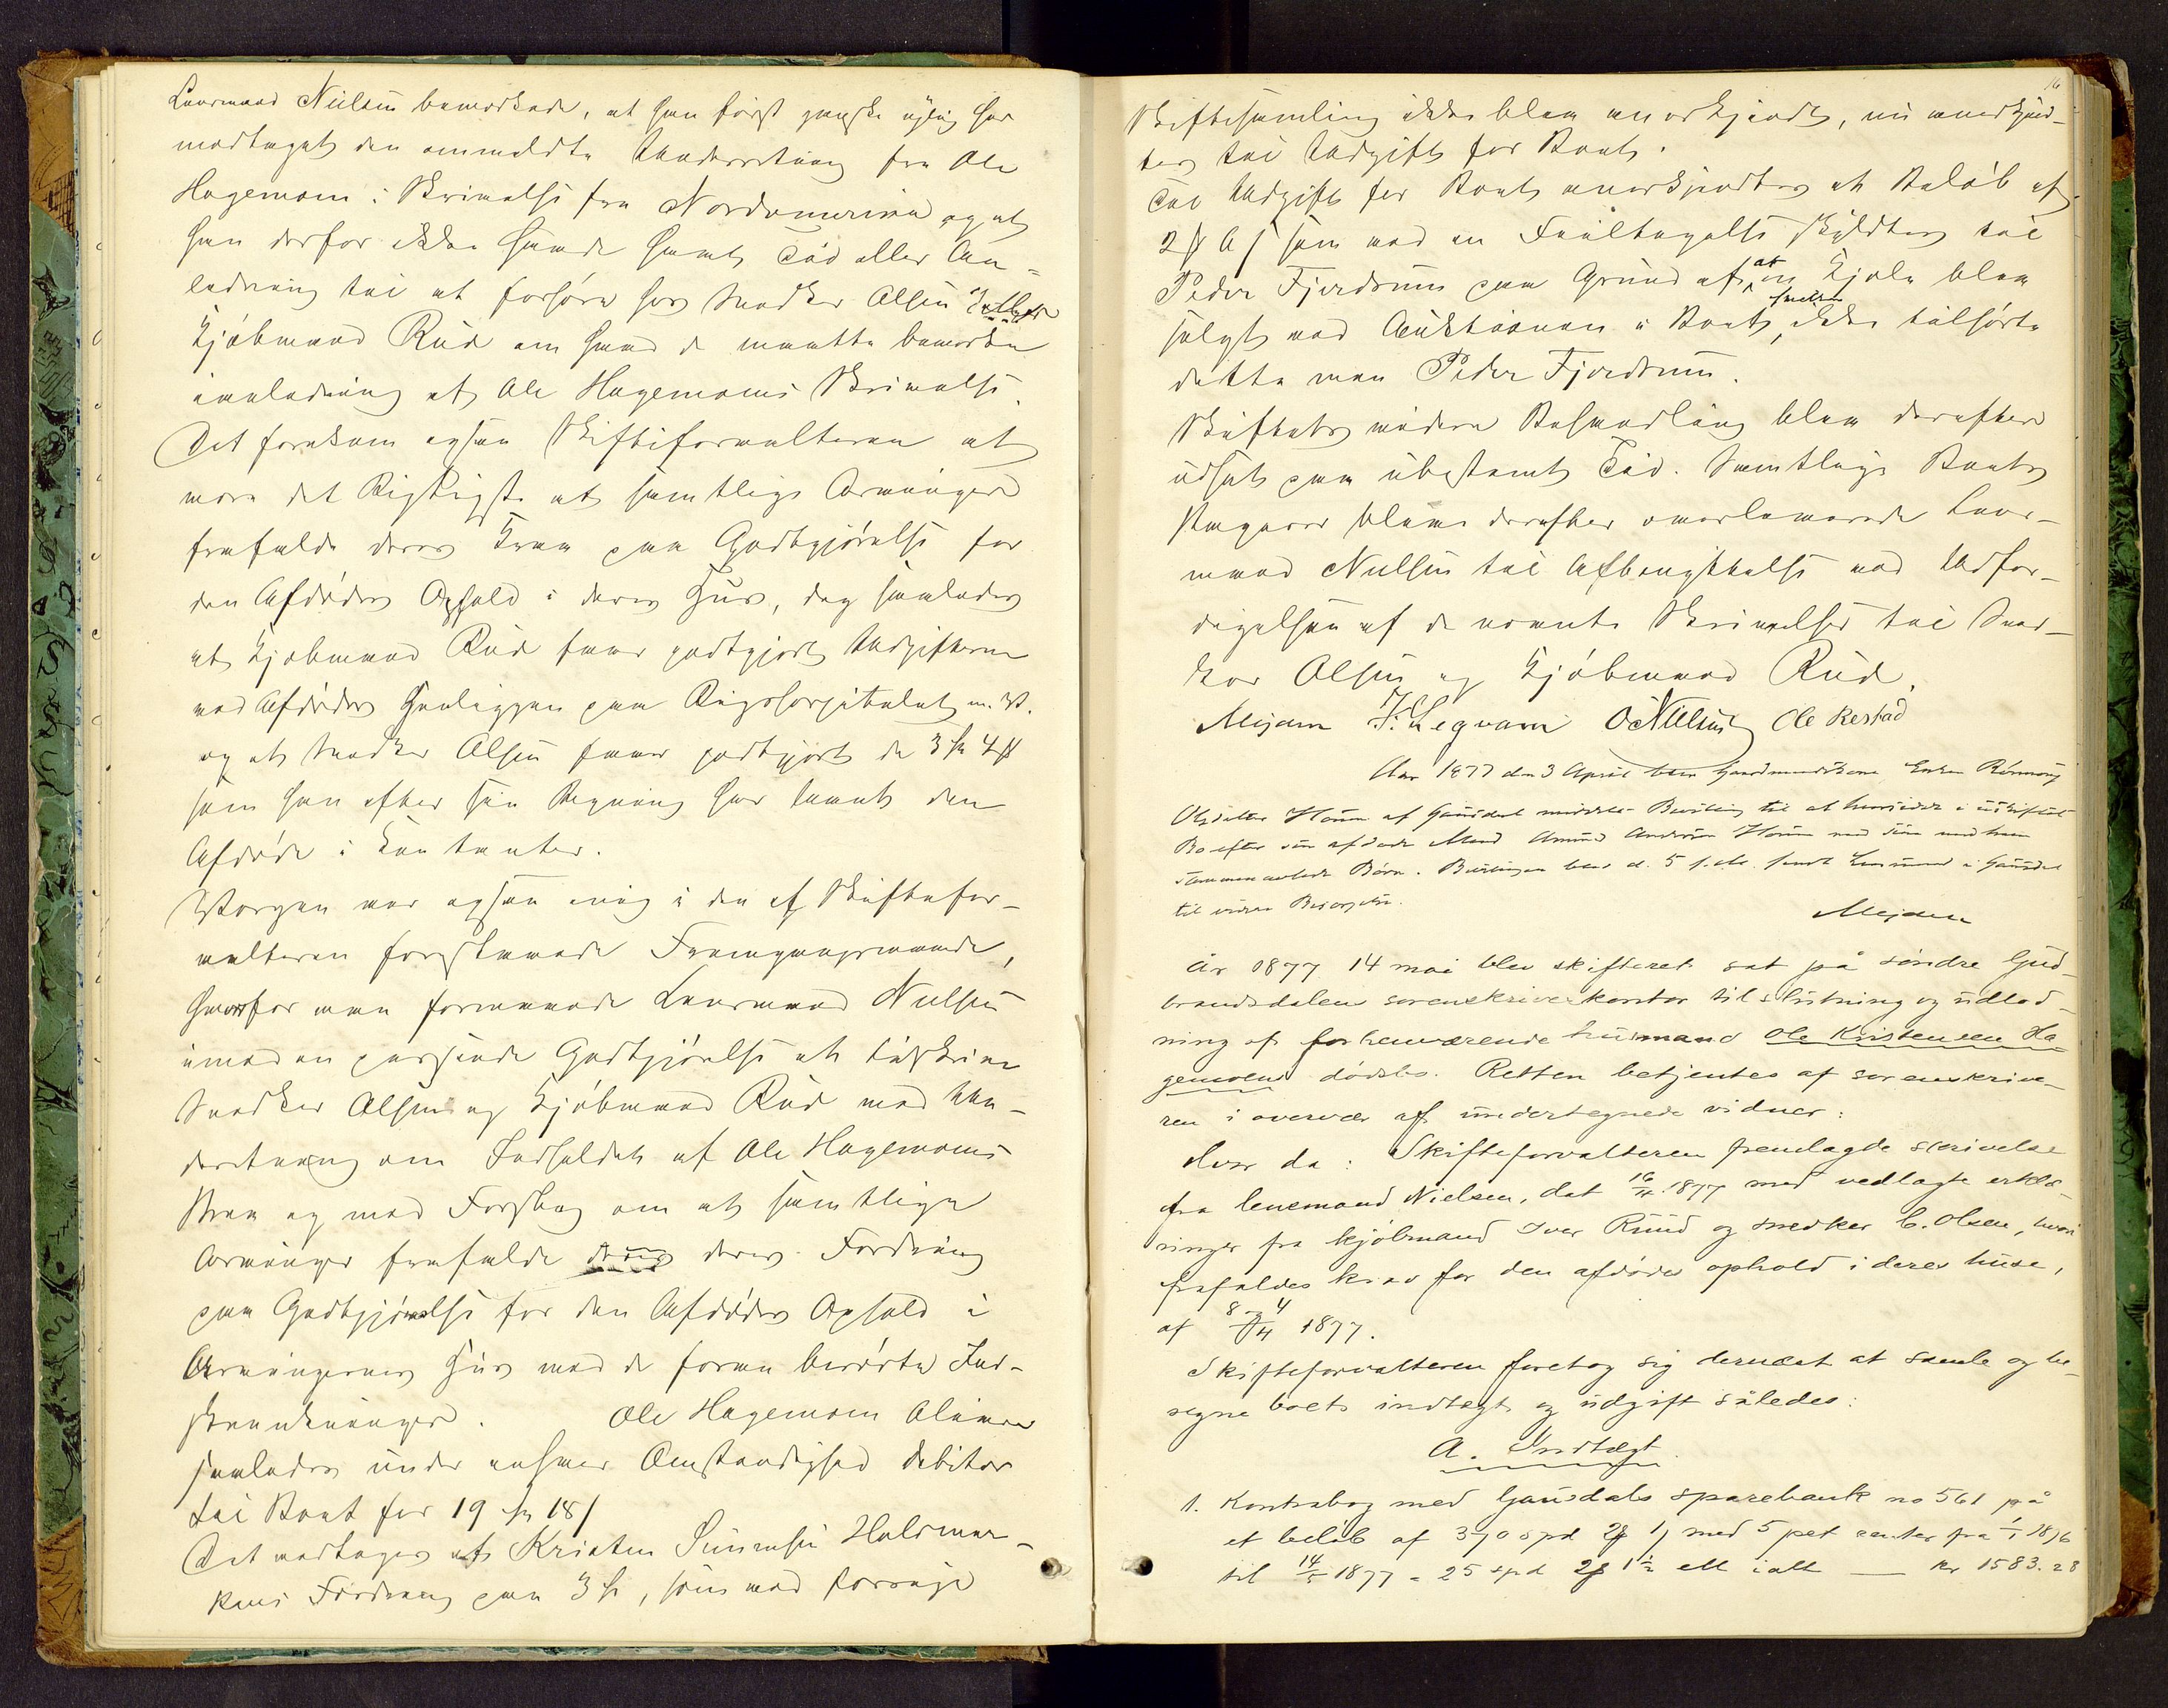 Lensmand Nielsen bemærkede, at han først ganske nylig har
modtaget den ommeldte Underretning fra Ole
Hagemoen i Skrivelse fra Nordamerika og at
han derfor ikke havde havt Tid eller An-
ledning til at forhøre hos Snedker Olsen
Kjøbmand Rud om hvad de maatte bemærke
i anledning af Ole Hagemoens Skrivelse.
Det forekom ogsaa Skifteforvalteren at
være det Rigtigste at samtlige Arvinger
frafaldt deres Krav paa Godtgjørelse for
den Afdødes Ophold i deres Hus, dog saaledes
at Kjøbmand Rud faar godtgjort Udgifterne
ved Afdødes Henliggen paa Rigshospitalet m. V.
og at Snedker Olsen faar godtgjort de 3 Sp 4
som han efter sin Regning har laant den
Afdøde i Kontanter.
Værgen var ogsaa enig i den af Skiftefor-
valteren foreslaaede Fremgangsmaade,
hvorfor man formaaede Lensmand Nielsen
imod en passende Godtgjørelse at tilskrive
Snedker Olsen og Kjøbmand Rud med Un-
derretning om Indholdet af Ole Hagemoens
Brev og med Forslag om at samtlige
Arvinger frafalde deres Fordring
paa Godtgjørelse for den Afdødes Ophold i
Arvingernes Hus med de foran berørte Ind-
skrænkninger. Ole Hagemoen bliver
saaledes under enhver Omstændighed debitor
til Boet for 19 Sp 18
Det vedtages at Kristen Simensen Holsmar-
kens Fordring paa 3 Sp, som ved forrige
16
Skiftesamling ikke blev anerkjendt, nu anerkjend-
tes til Udgift for Boet.
Til Udgift for Boet anerkjendtes et Beløb af
2 6 som ved en Feiltagelse skyldtes til
Peder Fjerdrum paa Grund af at en Kjole blev
solgt ved Auktionen i Boet, ikke tilhørte
dette men Peder Fjerdrum.
Skiftets videre Behandling blev derefter
udsat paa ubestemt Tid. Samtlige Boets
Papirer bleve derefter overleverede Lens-
mand Nielsen til Afbenyttelse ved Udfær-
digelsen af de nævnte Skrivelser til Sned-
ker Olsen og Kjøbmand Rud.
Mejdem J. Segvam O Nielsen Ole Restad
Aar 1877 den 3 April blev Gaardmandskone Enken Rønnaug
Olsdatter Houm af Gausdal meddelt Bevilling til at hensidde i uskiftet
Bo efter sin afdøde Mand Amund Andersen Houm med sine med ham
sammenavlede Børn. Bevillingen blev d. 5 s. M. sendt Lensmand i Gausdal
til videre Besørgelse.
Mejdem
År 1877 14 mai blev skifteret sat på søndre Gud-
brandsdalens sorenskriverkontor til slutning og udlod-
ning af forhenværende husmand Ole Kristensen Ha-
gemoens dødsbo. Retten betjentes af sorenskrive-
ren i overvær af undertegnede vidner:
Hvor da: Skifteforvalteren fremlagde skrivelse
fra lensmand Nielsen, dat 16/4 1877 med vedlagte erklæ-
ringer fra kjøbmand Iver Ruud og snedker C. Olsen, hvori
frafaldes krav for den afdødes ophold i deres huse,
af 8 og 4/4 1877.
Skifteforvalteren foretog sig dernæst at samle og be-
regne boets indtægt og udgift således:
A. Indtægt
1. Kontrabog med Gausdals sparebank no 561 på
et beløb af 370 spd 2 1 med 5 pct renter fra 1/1 1876
til 14/5 1877 = 25 spd 2 1½ ell ialt — kr 1583.28